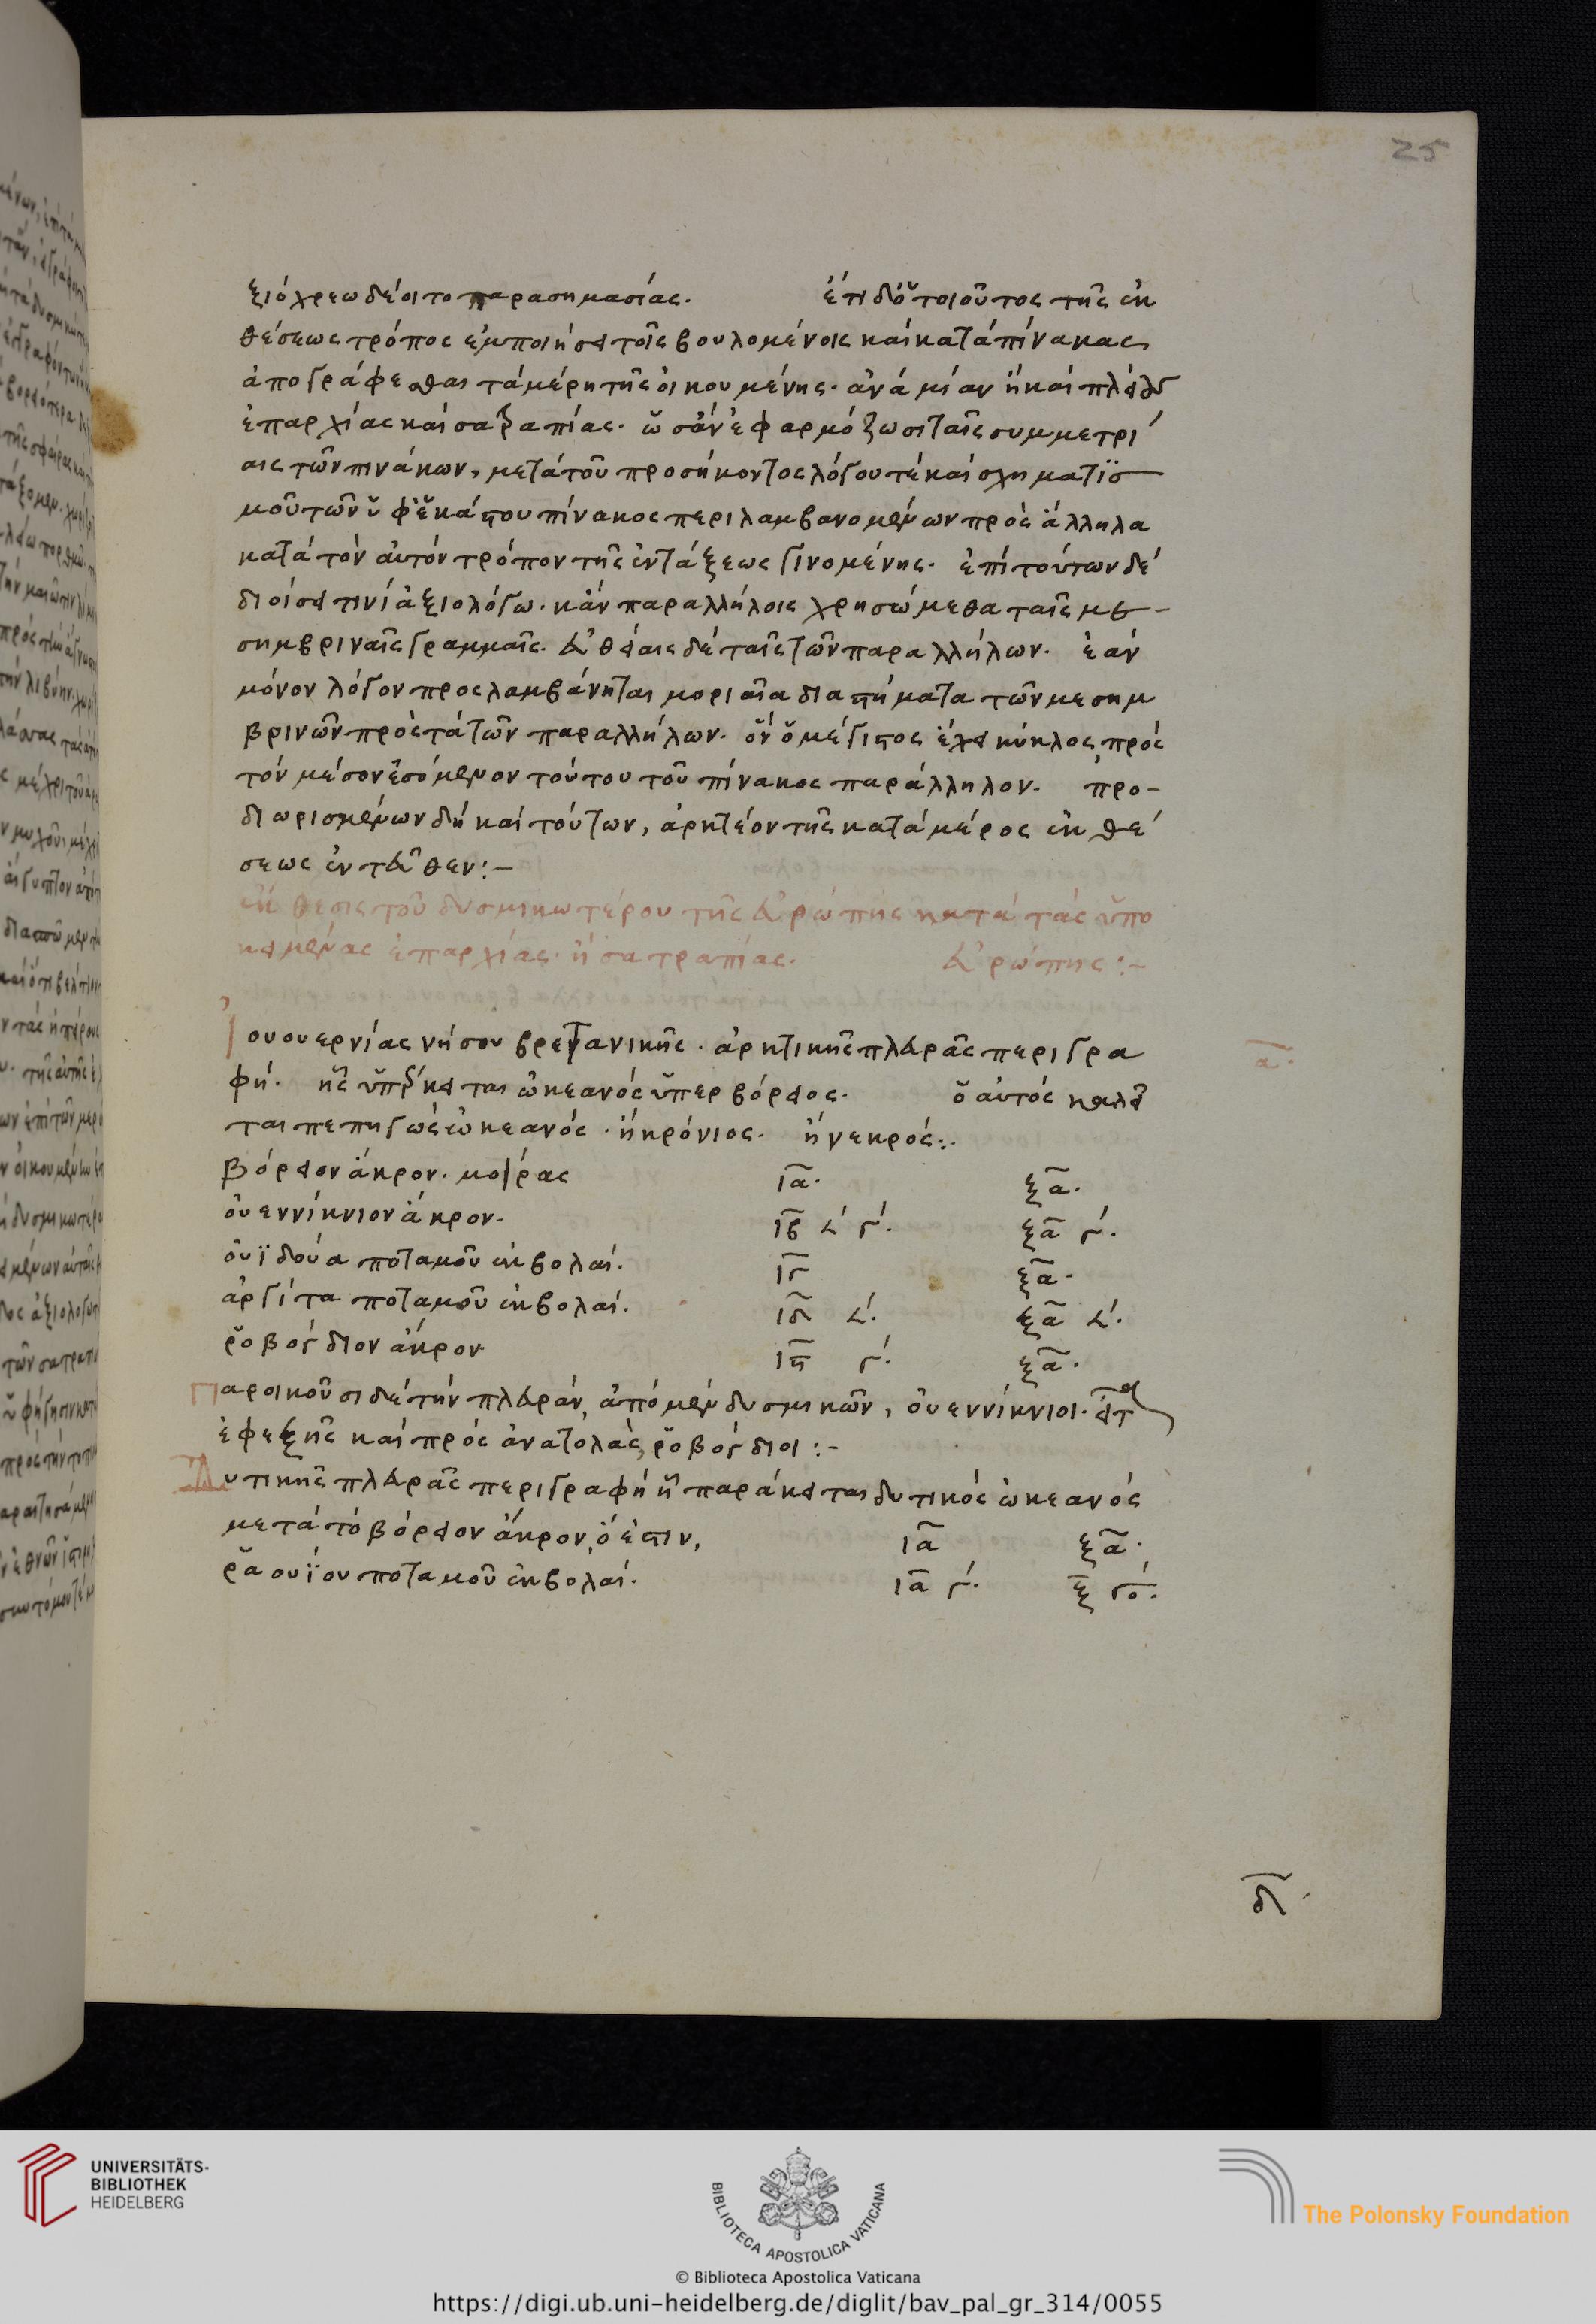 25
ξιόχρεω δέοιτο παρασημασίας. ἔτι δ' ὁ τοιοῦτος τῆς ἐκ
θέσεως τρόπος ἐμποιήσει τοῖς βουλομένοις καὶ κατὰ πίνακας
ἀπογράφεσθαι τὰ μέρη τῆς οἰκουμένης. ἀνὰ μίαν ἢ καὶ πλείους
ἐπαρχίας καὶ σατραπίας. ὡς ἂν ἐφαρμόζωσι ταῖς συμμετρί
αις τῶν πινάκων, μετὰ τοῦ προσήκοντος λόγου τὲ καὶ σχηματισ
μοῦ τῶν ὑφ' ἑκάστου πίνακος περιλαμβανομένων πρὸς ἄλληλα
κατὰ τὸν αὐτὸν τρόπον τῆς ἐντάξεως γινομένης. ἐπὶ τούτων δὲ
διοίσει τινὶ ἀξιολόγω. κἂν παραλλήλοις χρησώμεθα ταῖς με-
σημβριναῖς γραμμαῖς. εὐθείαις δὲ ταῖς τῶν παραλλήλων. ἐὰν
μόνον λόγον προσλαμβάνηται μοριαῖα διαστήματα τῶν μεσημ
βρινῶν πρὸς τὰ τῶν παραλλήλων. ὃν ὁ μέγιστος ἔχει κύκλος, πρὸς
τὸν μέσον ἐσόμενον τούτου τοῦ πίνακος παράλληλον. προ-
διωρισμένων δὴ καὶ τούτων, ἀρκτέον τῆς κατὰ μέρος ἐκ θέ
σεως ἐντεῦθεν:-
ἔκθεσις τοῦ δυσμικωτέρου τῆς εὐρώπης κατὰ τὰς ὑπο
κειμένας ἐπαρχίας. ἢ σατραπίας. εὐρώπης:-
Ἰουουερνίας νήσου βρετανικῆς. ἀρκτικῆς πλευρᾶς περιγρα
φή. ἧς ὑπέρκειται ὠκεανὸς ὑπερβόρειος. ὁ αὐτὸς καλεῖ
ται πεπηγὼς ὠκεανός. ἢ κρόνιος. ἢ νεκρός:.
α.
βόρειον ἄκρον. μοίρας ια. ξα.
οὐεννίκνιον ἄκρον. ιβ 𐅵 γ. ξα γ.
οὐϊδούα ποταμοῦ ἐκβολαί. ιγ ξα.
ἀργίτα ποταμοῦ ἐκβολαί. ιδ 𐅵. ξα 𐅵.
ῥοβόγδιον ἄκρον. ιϛ γ. ξα.
Παροικοῦσι δὲ τὴν πλευράν, ἀπὸ μὲν δυσμικῶν, οὐεννίκνιοι. εἶτα
ἐφεξῆς καὶ πρὸς ἀνατολάς, ῥοβόγδιοι:-
Δυτικῆς πλευρᾶς περιγραφὴ ᾗ παράκειται δυτικὸς ὠκεανὸς
μετὰ τὸ βόρειον ἄκρον, ὅ ἐστιν, ια ξα.
ῥαουΐου ποταμοῦ ἐκβολαί. ια γ. ξ γο.
δ.
UNIVERSITÄTS-
BIBLIOTHEK
HEIDELBERG
BIBLIOTECA APOSTOLICA VATICANA
© Biblioteca Apostolica Vaticana
The Polonsky Foundation
https://digi.ub.uni-heidelberg.de/diglit/bav_pal_gr_314/0055